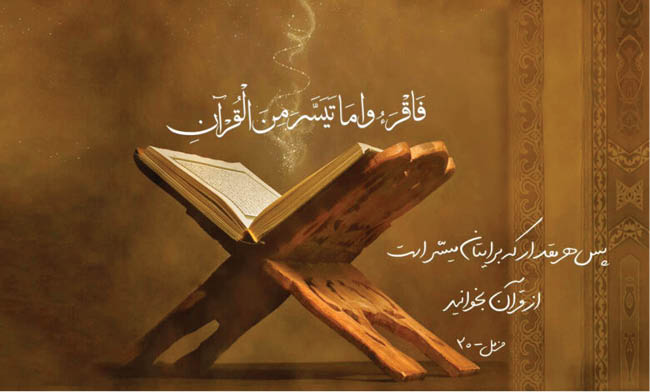 فَاقْرَءُوا مَا تَيَسَّرَ مِنَ الْقُرْآنِ
پس هر مقدار که برایتان میسّر است
از قرآن بخوانید
مزمل - ۲۰